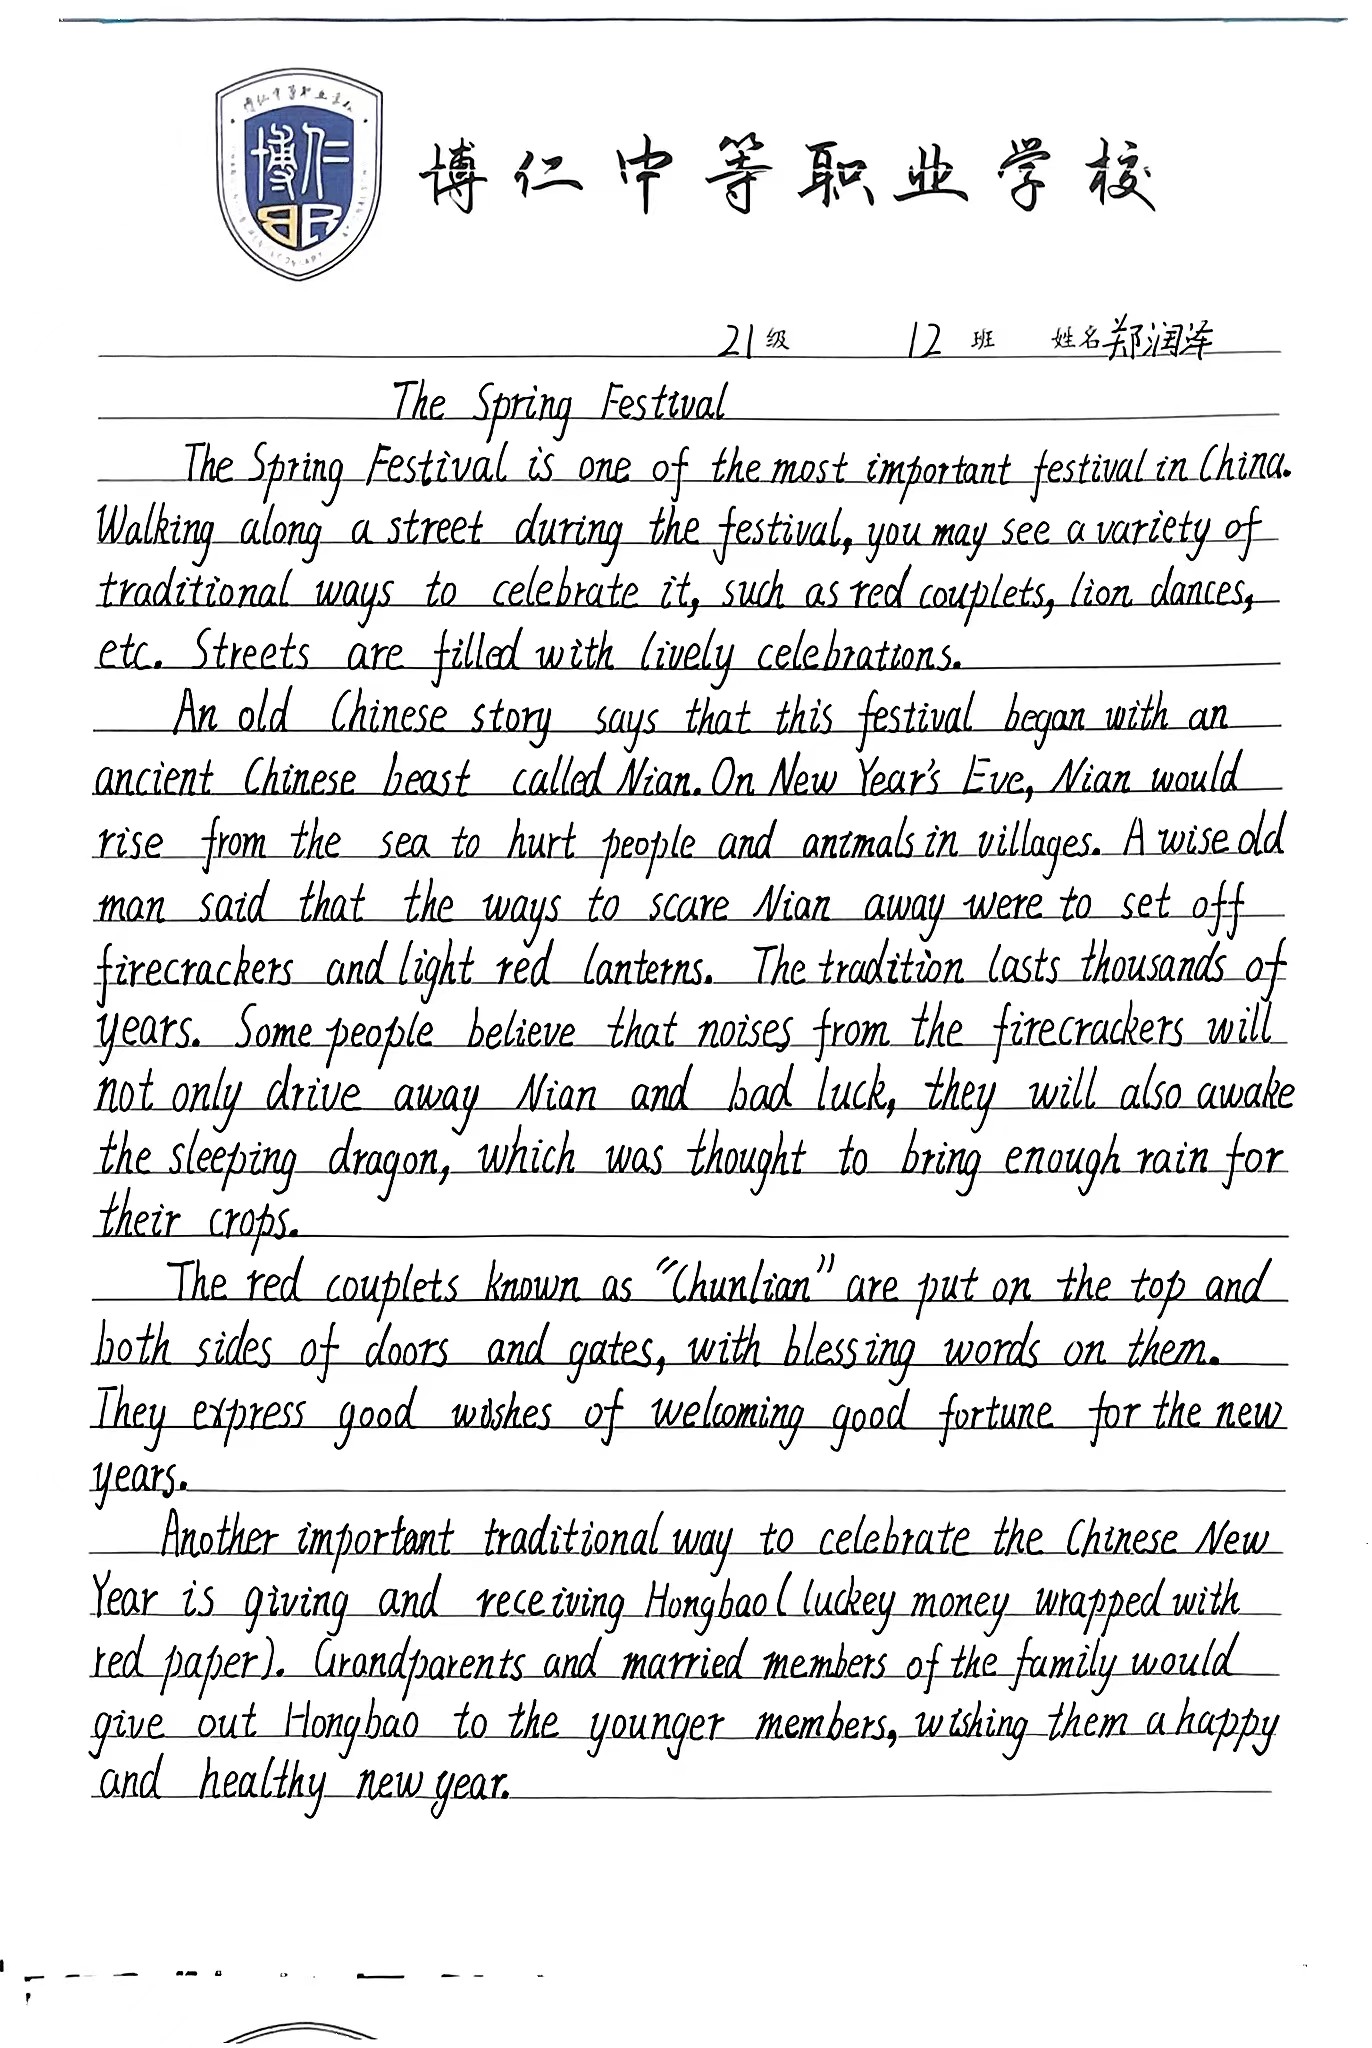 博仁
BR
博仁中等职业学校
21级 12班 姓名郑润泽
The Spring Festival
The Spring Festival is one of the most important festival in China.
Walking along a street during the festival, you may see a variety of
traditional ways to celebrate it, such as red couplets, lion dances,
etc. Streets are filled with lively celebrations.
An old Chinese story says that this festival began with an
ancient Chinese beast called Nian. On New Year's Eve, Nian would
rise from the sea to hurt people and animals in villages. A wise old
man said that the ways to scare Nian away were to set off
firecrackers and light red lanterns. The tradition lasts thousands of
years. Some people believe that noises from the firecrackers will
not only drive away Nian and bad luck, they will also awake
the sleeping dragon, which was thought to bring enough rain for
their crops.
The red couplets known as "Chunlian" are put on the top and
both sides of doors and gates, with blessing words on them.
They express good wishes of welcoming good fortune for the new
years.
Another important traditional way to celebrate the Chinese New
Year is giving and receiving Hongbao (luckey money wrapped with
red paper). Grandparents and married members of the family would
give out Hongbao to the younger members, wishing them a happy
and healthy new year.